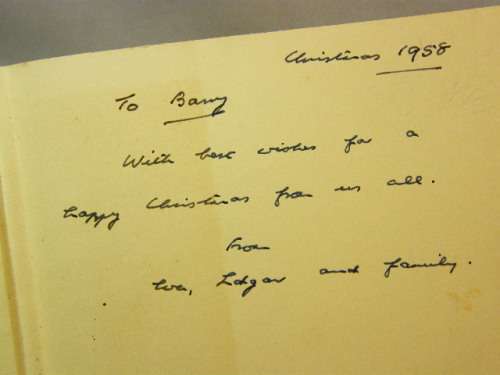 Christmas 1958
To Barry
With best wishes for a
happy Christmas from us all.
From
Eva, Edgar and family.